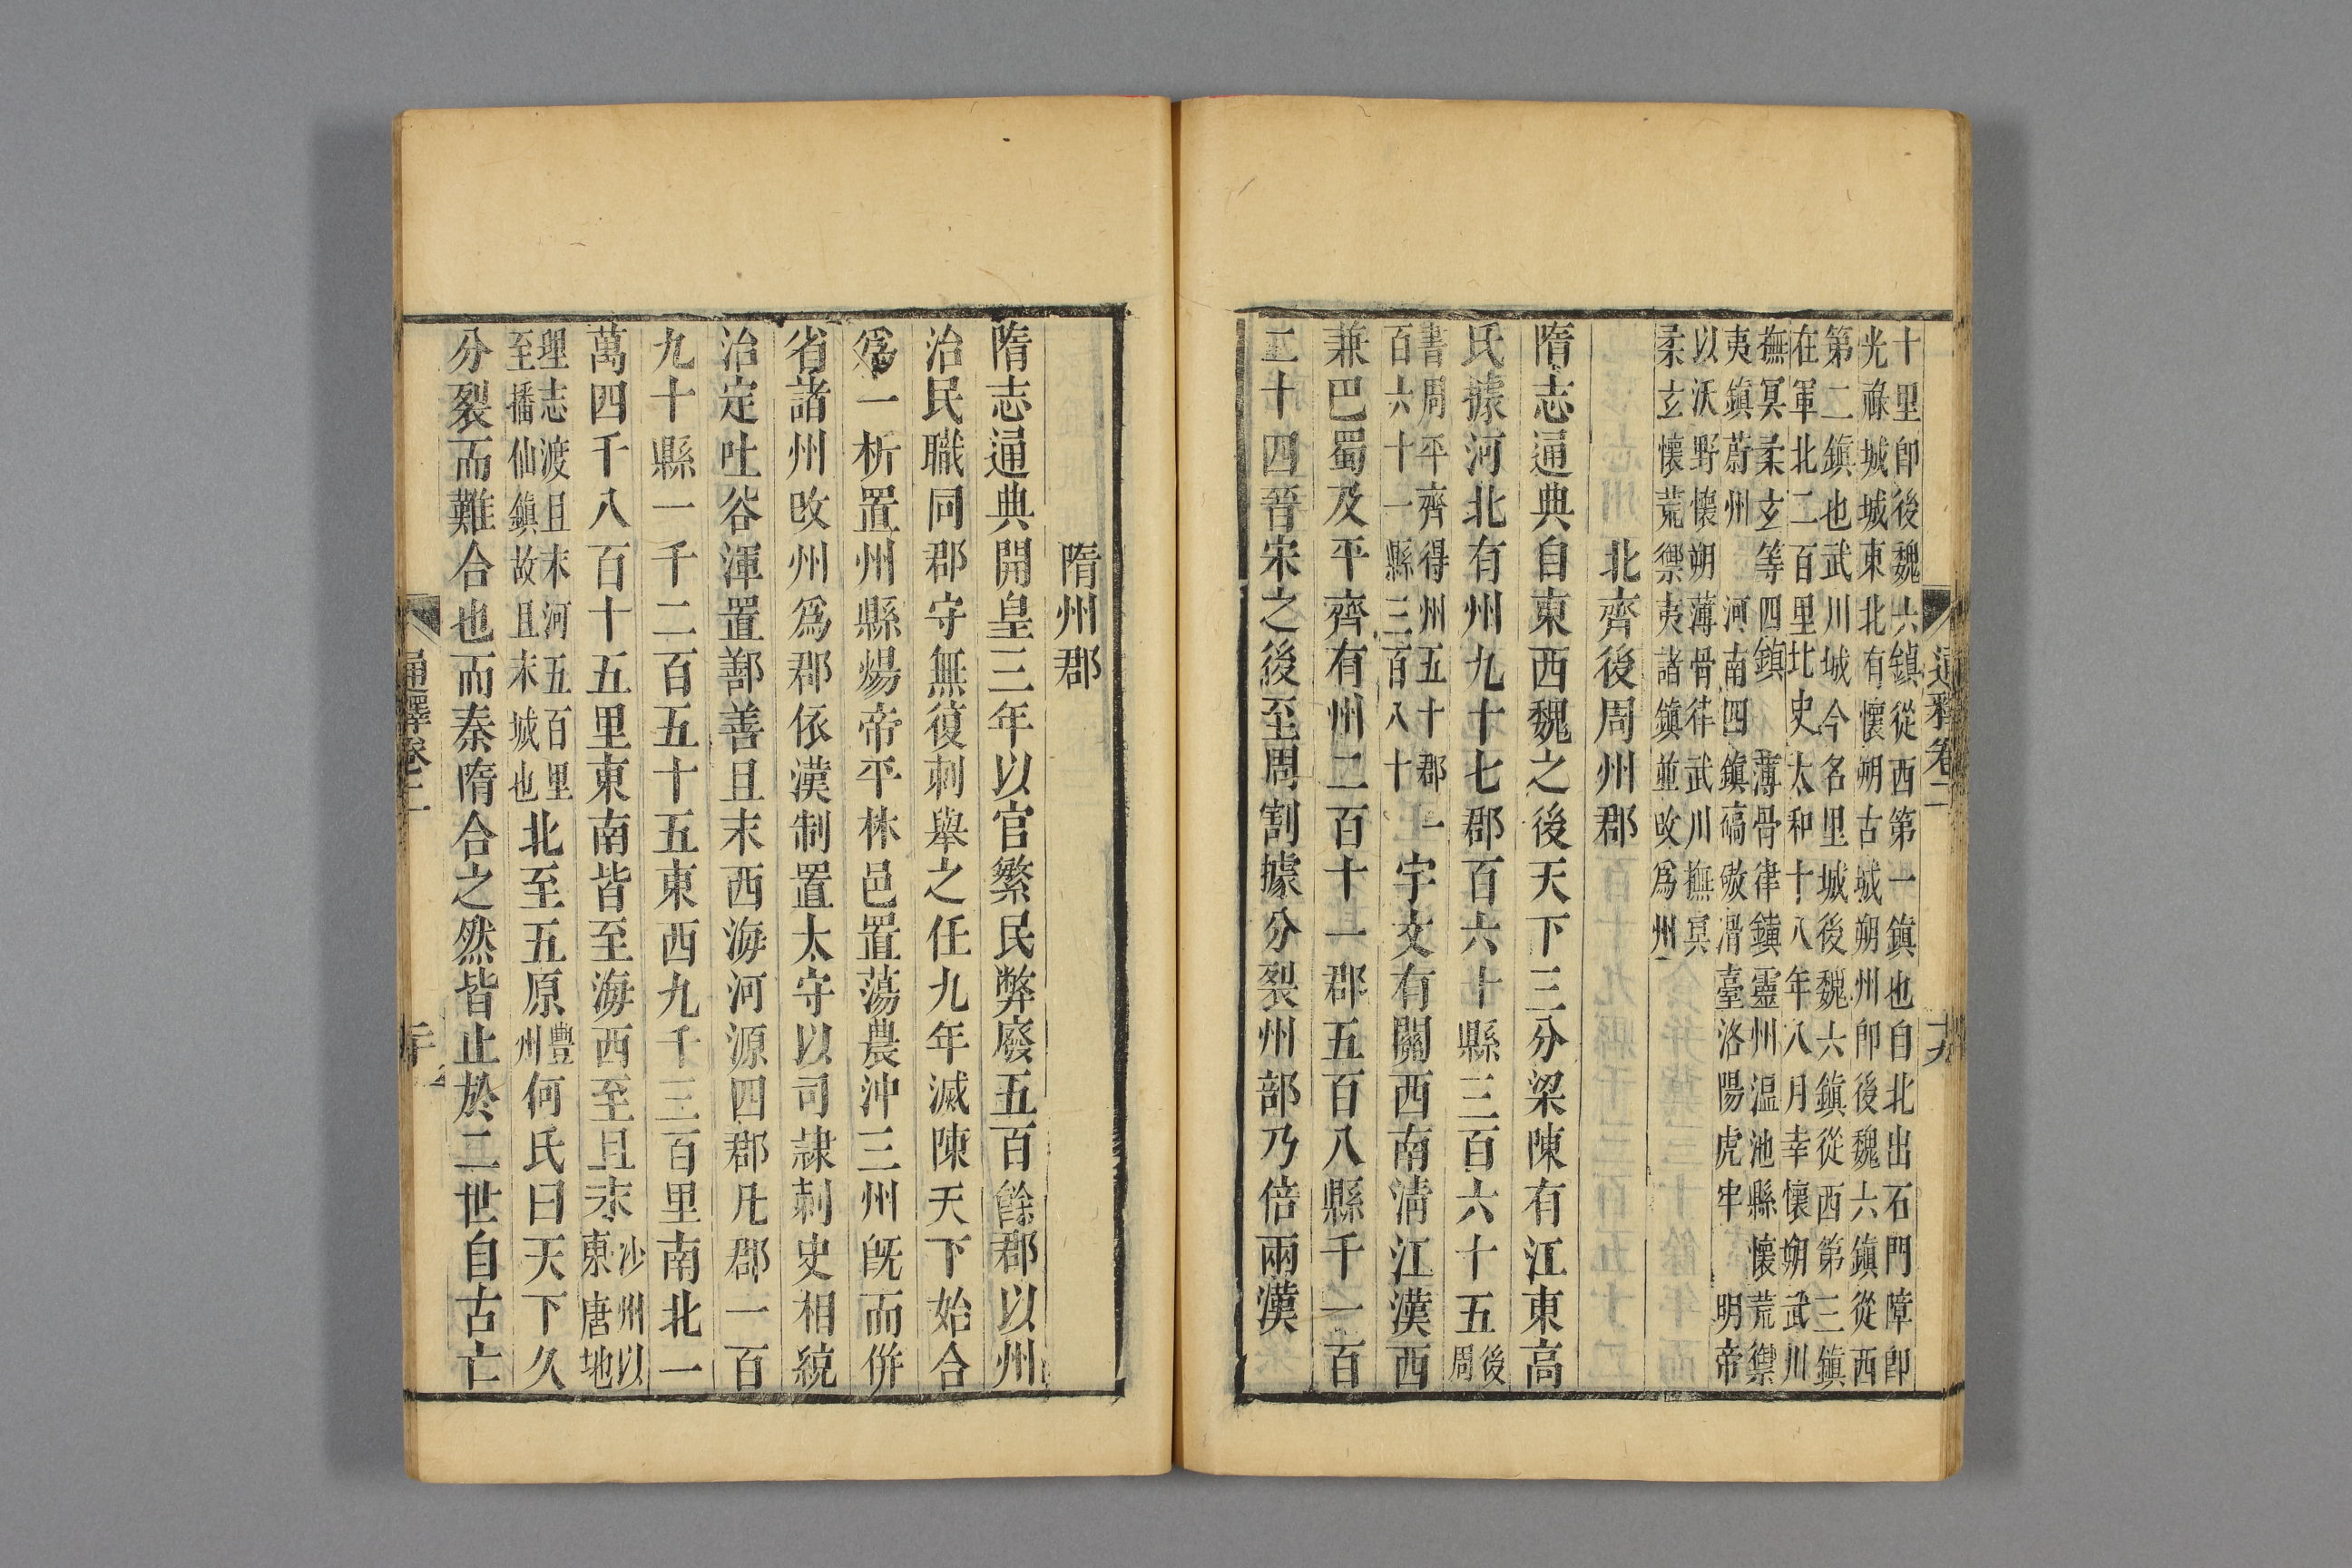 通釋卷二
十九
十里卽後魏六鎮從西第一鎮也自北出石門障卽
光祿城城東北有懷朔古城朔州卽後魏六鎮從西
第二鎮也武川城今名里城後魏六鎮從西第三鎮
在軍北二百里北史太和十八年八月幸懷朔武川
撫冥柔玄等四鎮 薄骨律鎮靈州温池縣懷荒禦
夷鎮蔚州 河南四鎮碻磝滑臺洛陽虎牢 明帝
以沃野懷朔薄骨律武川撫冥
柔玄懷荒禦夷諸鎮並攺爲州
北齊後周州郡
隋志通典自東西魏之後天下三分梁陳有江東高
氏據河北有州九十七郡百六十縣三百六十五後周
書周平齊得州五十郡一百六十一縣三百八十宇文有關西南淸江漢西
兼巴蜀及平齊有州二百十一郡五百八縣千一百
二十四晉宋之後至周割據分裂州部乃倍兩漢
隋州郡
隋志通典開皇三年以官繁民弊廢五百餘郡以州
治民職同郡守無復刺舉之任九年滅陳天下始合
爲一析置州縣煬帝平林邑置蕩農沖三州旣而倂
省諸州攺州爲郡依漢制置太守以司隸刺史相統
治定吐谷渾置鄯善且末西海河源四郡凡郡一百
九十縣一千二百五十五東西九千三百里南北一
萬四千八百十五里東南皆至海西至且末沙州以東唐地
理志渡且末河五百里至播仙鎮故且末城也北至五原豐州何氏曰天下久
分裂而難合也而秦隋合之然皆止於二世自古亡
通釋卷二